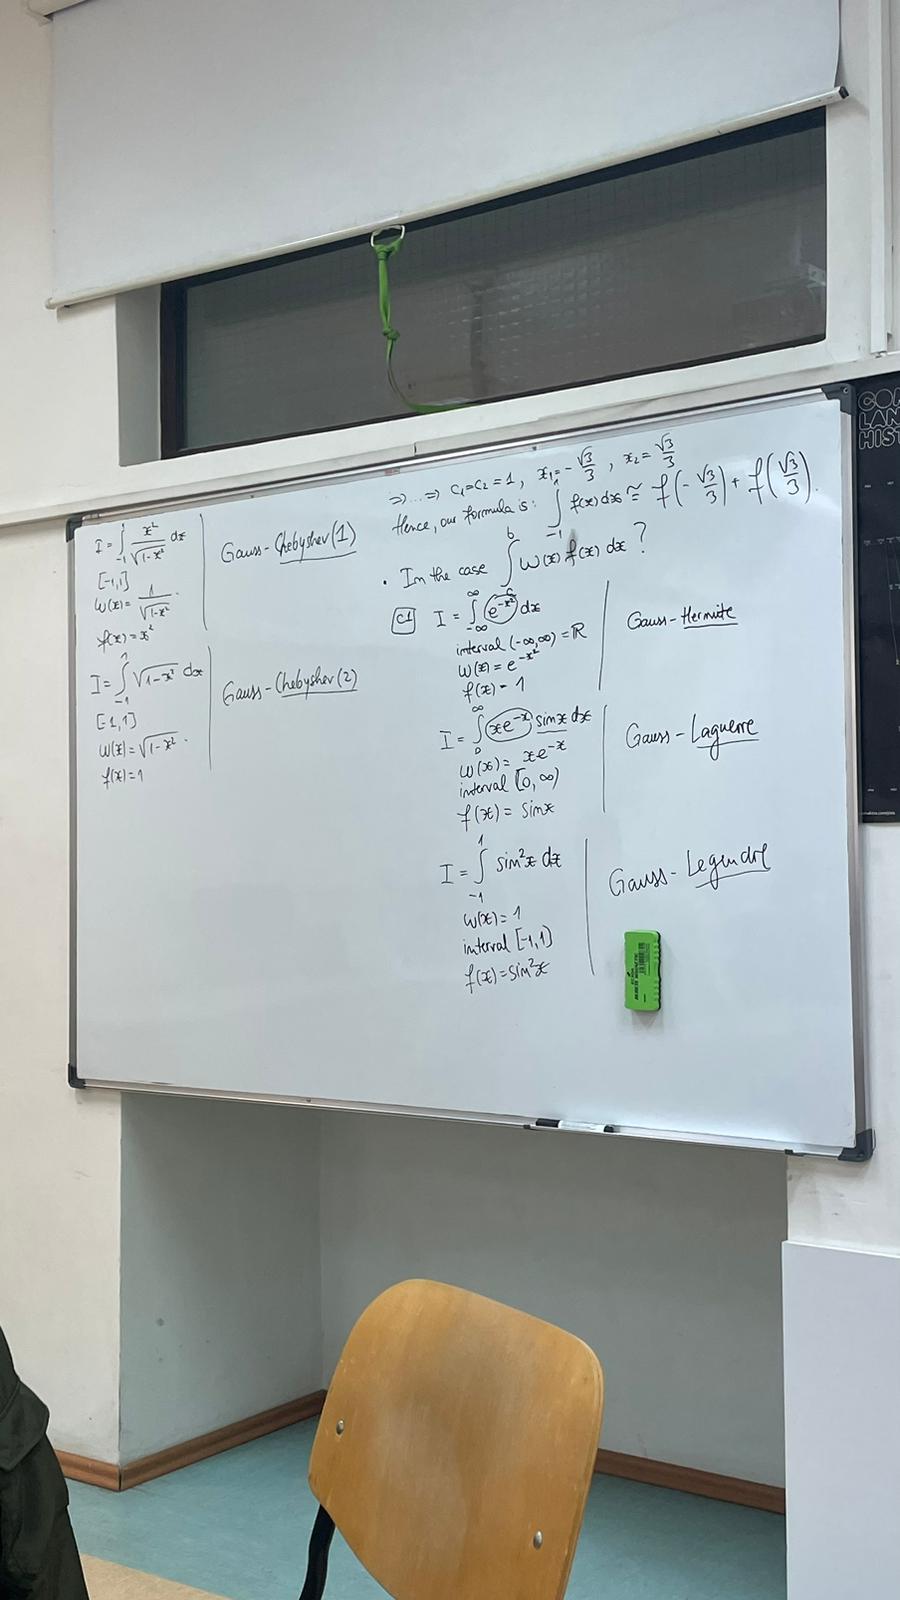 I = ∫₋₁¹ x²/√(1-x²) dx
[-1,1]
w(x) = 1/√(1-x²).
f(x) = x²
Gauss-Chebyshev(1)
I = ∫₋₁¹ √(1-x²) dx
[-1,1]
w(x) = √(1-x²).
f(x) = 1
Gauss-Chebyshev(2)
⇒ ... ⇒ c₁=c₂=1, x₁=-√3/3, x₂=√3/3
Hence, our formula is: ∫₋₁¹ f(x) dx ≅ f(-√3/3) + f(√3/3).
• In the case ∫ᵇ w(x) f(x) dx ?
C1 I = ∫_{-∞}^{∞} e^{-x²} dx
interval (-∞,∞) = ℝ
w(x) = e^{-x²}
f(x) = 1
Gauss-Hermite
I = ∫₀^∞ xe^{-x} sinx dx
w(x) = xe^{-x}
interval [0,∞)
f(x) = sinx
Gauss-Laguerre
I = ∫₋₁¹ sin²x dx
w(x) = 1
interval [-1,1]
f(x) = sin²x
Gauss-Legendre
CO
LAN
HIST